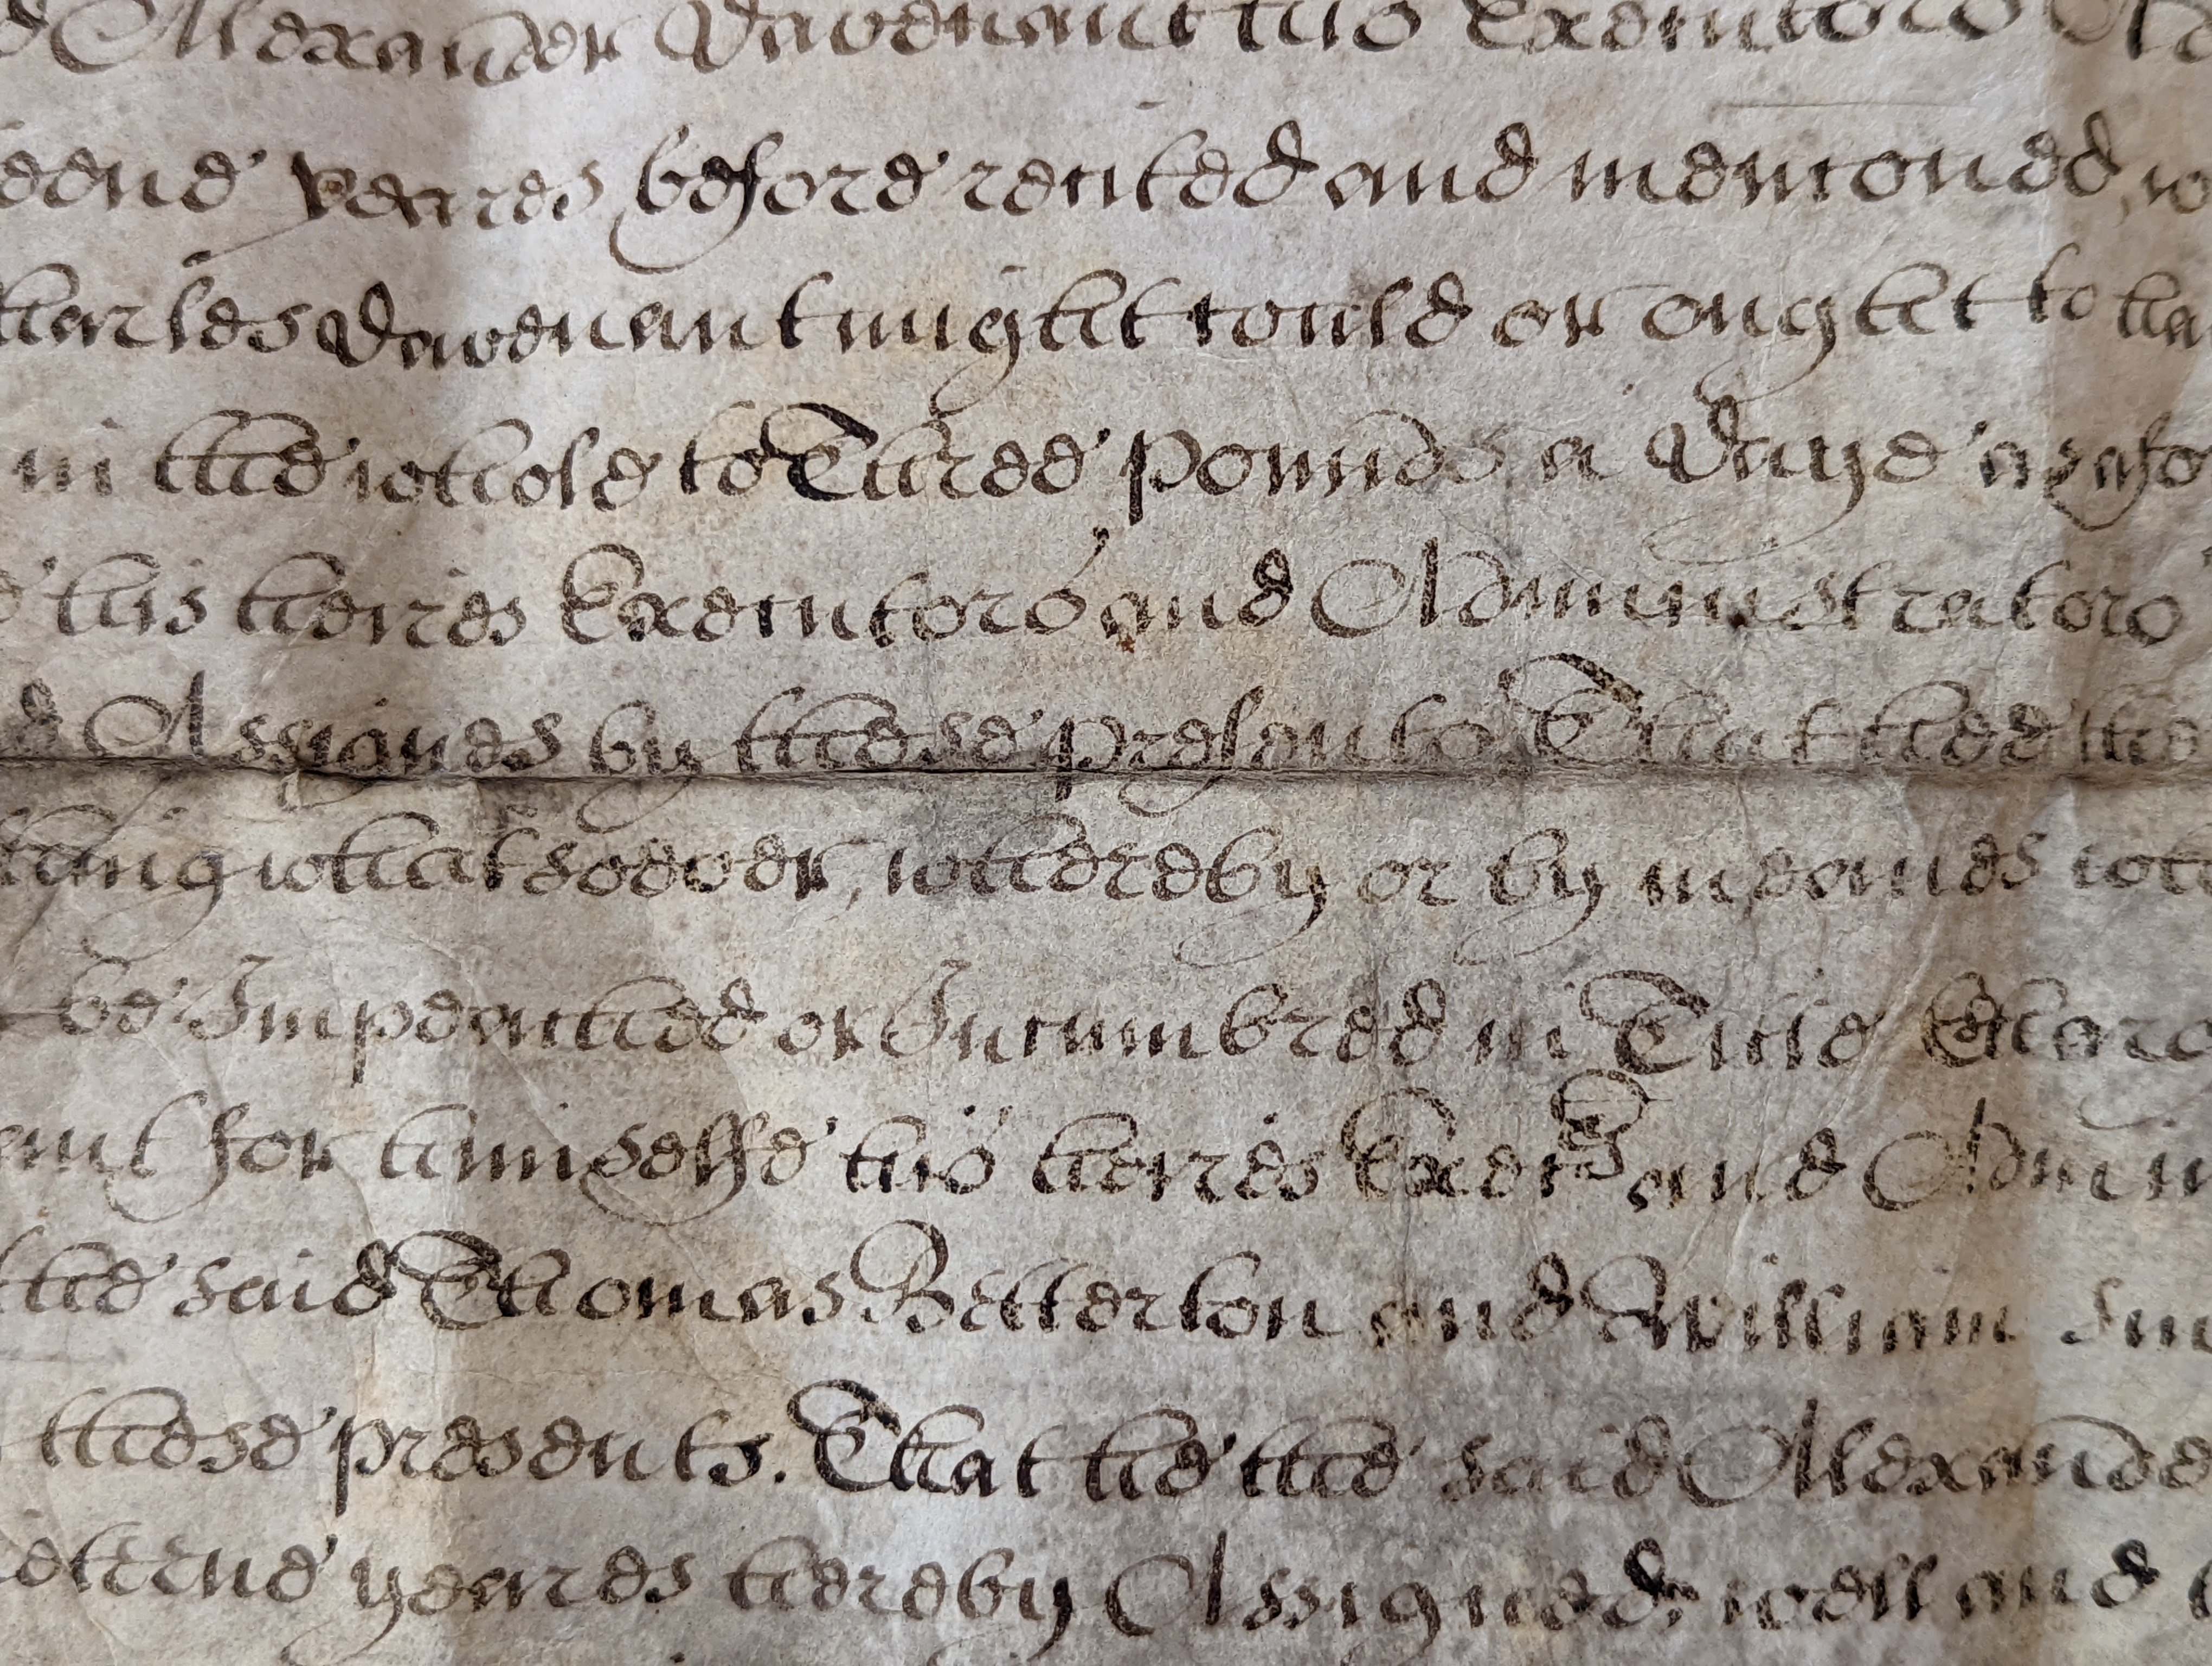 Alexander Davenant his Executors
yeares before recited and menconed,
Charles Davenant might could or ought to ha
in the whole to Three pounds a Daye
his heires Executors and Administrators
Assignes by these presents That hee the
thing whatsoever, whereby or by meanes wh
be Impeached or Incumbred in Title Charg
for himselfe his heires Exec:rs and Admin
the said Thomas Betterton and William Sm
these presents. That he the said Alexande
yeares hereby Assigned, well and